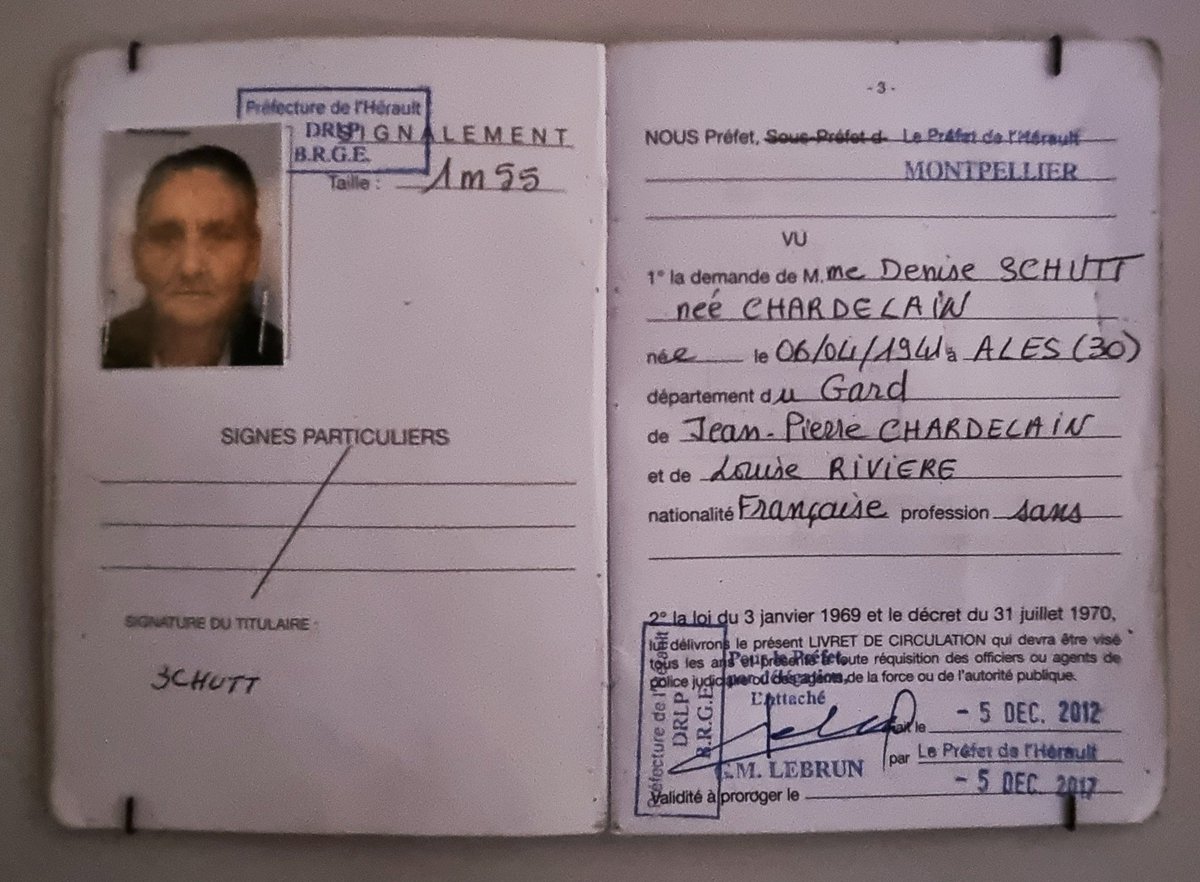 Préfecture de l'Hérault
DRLP
B.R.G.E.
SIGNALEMENT
Taille : 1m55
SIGNES PARTICULIERS
SIGNATURE DU TITULAIRE :
SCHUTT
- 3 -
NOUS Préfet, Sous-Préfet d Le Préfet de l'Hérault
MONTPELLIER
VU
1° la demande de M.me Denise SCHUTT
neé CHARDELAIN
née le 06/04/1941 à ALES (30)
département du Gard
de Jean-Pierre CHARDELAIN
et de Louise RIVIERE
nationalité Française profession sans
2° la loi du 3 janvier 1969 et le décret du 31 juillet 1970,
lui délivrons le présent LIVRET DE CIRCULATION qui devra être visé
tous les ans et présenté à toute réquisition des officiers ou agents de
police judiciaire ou des agents de la force ou de l'autorité publique.
Pour le Préfet,
par délégation,
L'attaché
Préfecture de l'Hérault
DRLP
B.R.G.E.
Fait le - 5 DEC. 2012
par Le Préfet de l'Hérault
M. LEBRUN
Validité à proroger le - 5 DEC. 2017